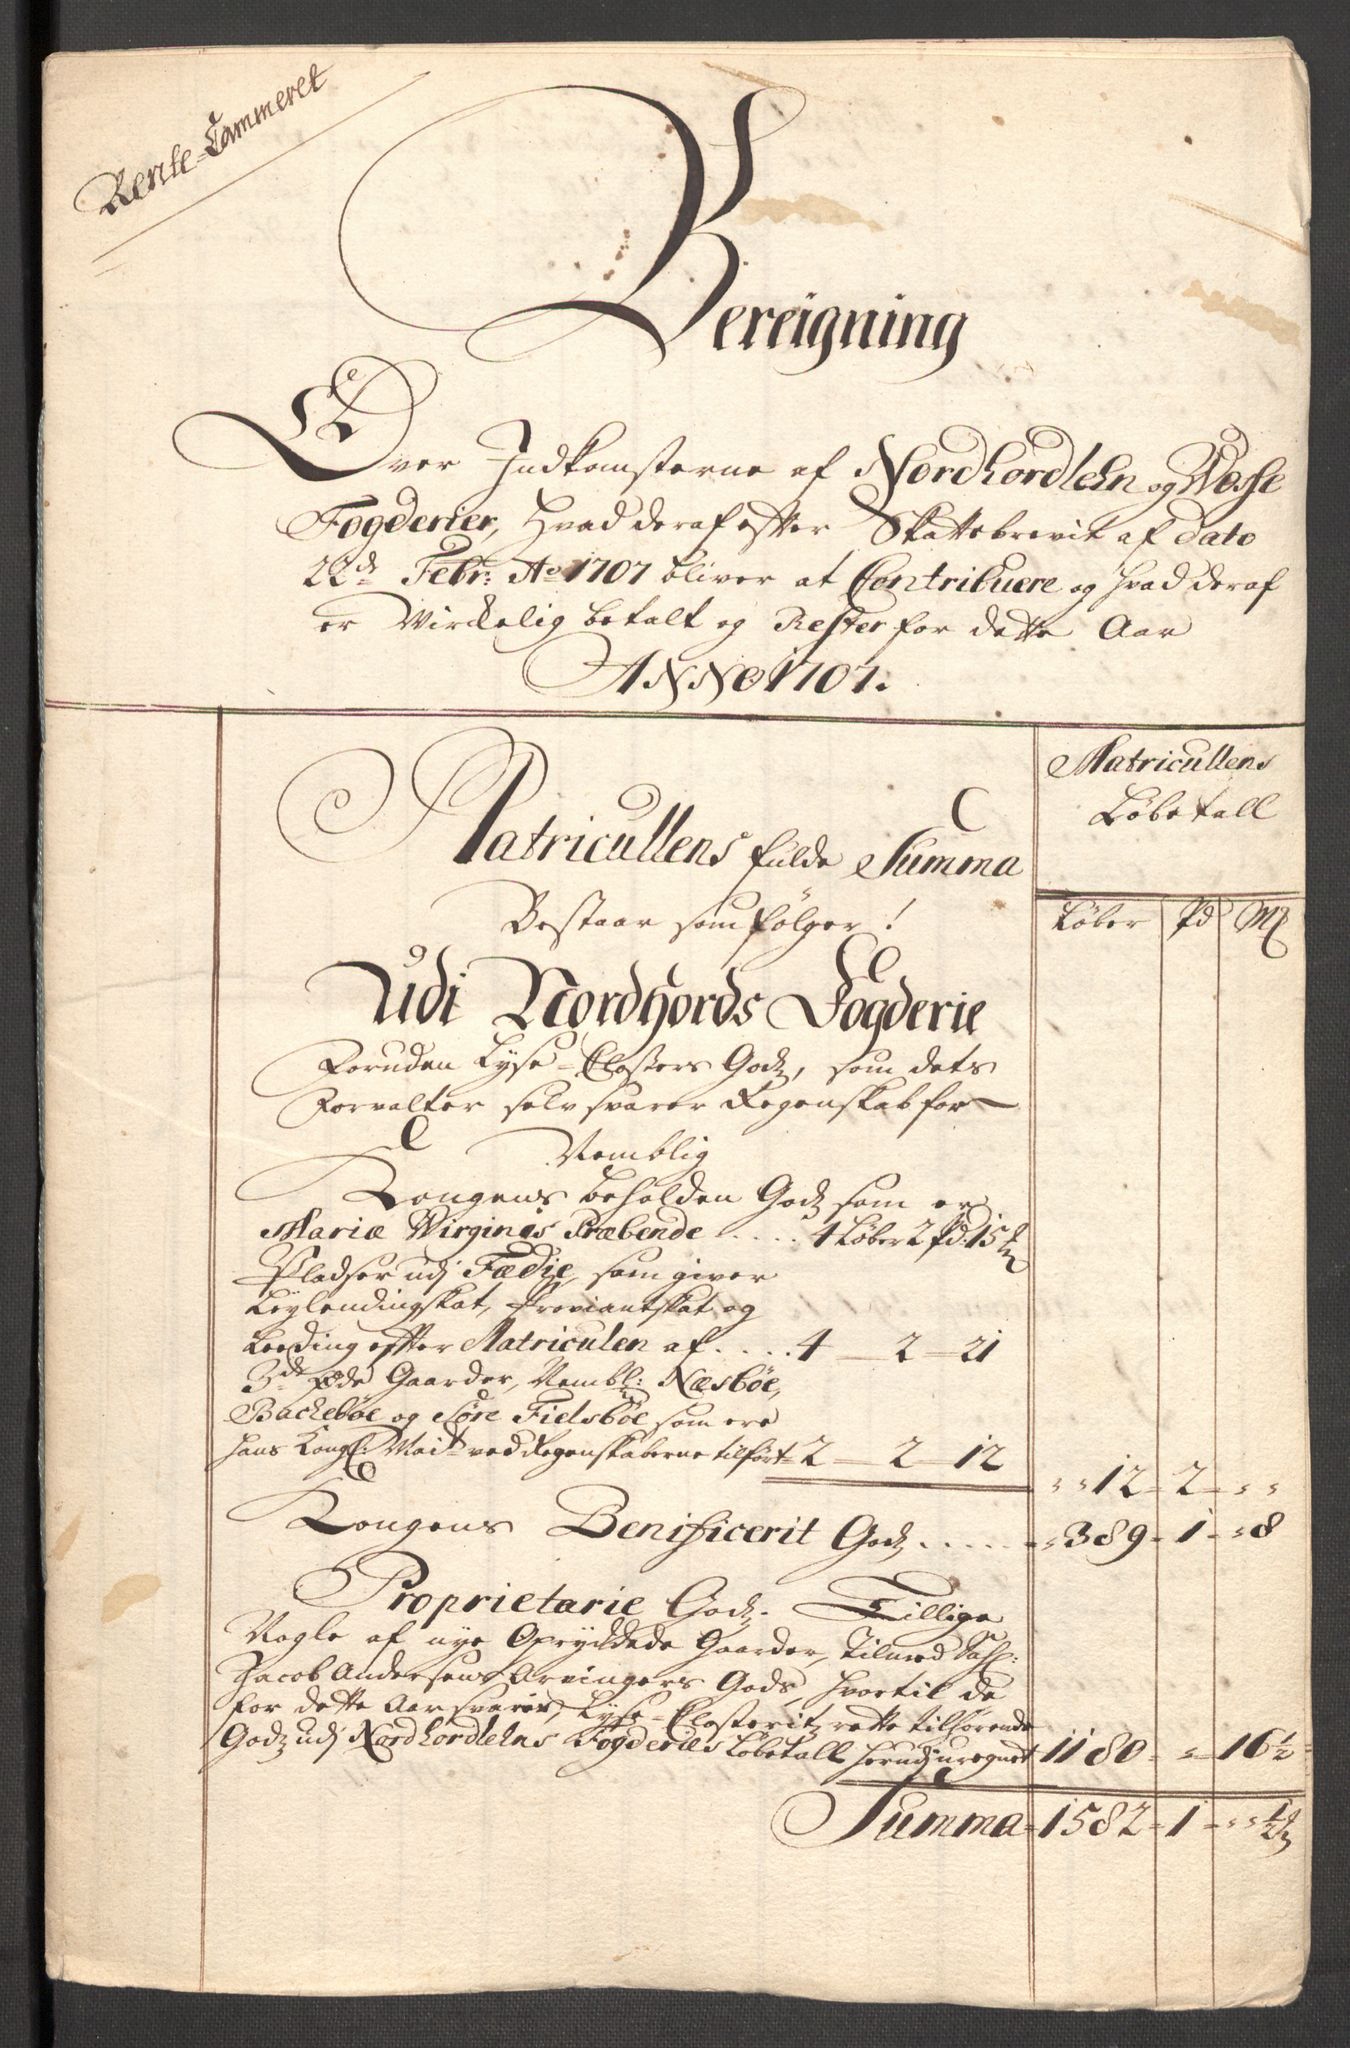 Rente-Cammeret
Bereigning
Over Indkomsterne af Nordhordlehn og Wosse
Fogderier, Hvad deraf efter Skattebrevit af dato
22de Febr: Ao 1707 bliver at Contribuere og hvad deraf
er Wirckelig betalt og Rester for dette Aar
ANNO 1707.
Matricullens
Løbetall
Matricullens fulde Summa
Bestaar som følger!
Løber Pd Mk
Udi Nordhords Fogderie
Foruden Lyse-Closters Godz, som dets
Forvalter selv svarer Regenskab for
Nemblig
Kongens beholden Godz som er
Mariæ Virginis Præbende .... 4 Løber 2 Pd: 15
Pladser udj Fædie, som giver
Leylendingskat, Proviantskat og
Leeding efter Matriculen af .... 4 - 2 - 21
3de øde Gaarder, Nembl: Næsbøe,
Backebøe og Søre Fielsbøe som ere
hans Kongl: Mait ved Regenskaberne tilført 2 - 2 - 12
" " 12 - 2 - " "
Kongens Benificerit Godz ...... " 389 - 1 - " 8
Proprietarie Godz. Tillige
Nogle af nye Opryddede Gaarder, Tilmed Sal:
Jacob Andersens Arvingers Gods, hvortil de
for dette Aar svarer, Lyse-Closteritz rette tilhørende
Godz udj Nordhordlehns Fogderies Løbetall herudj uregnet 1180 - " - 16 1/2
Summa 1582 - 1 - " " 1/2